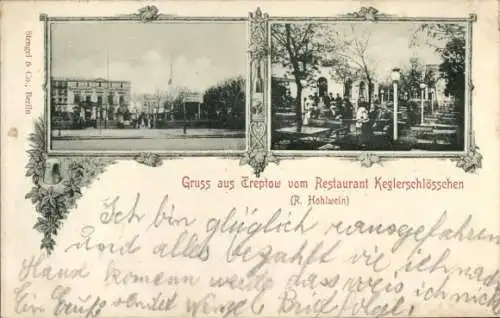 Stengel & Co., Berlin
Gruss aus Treptow vom Restaurant Keglerschlösschen
(R. Hohlwein)
Ich bin glüglich rausgefahren
und alles bezahlt wie ich nach
Haus komenn werde dass weis ich nicht
Ein Gruss sendet Brief folgt